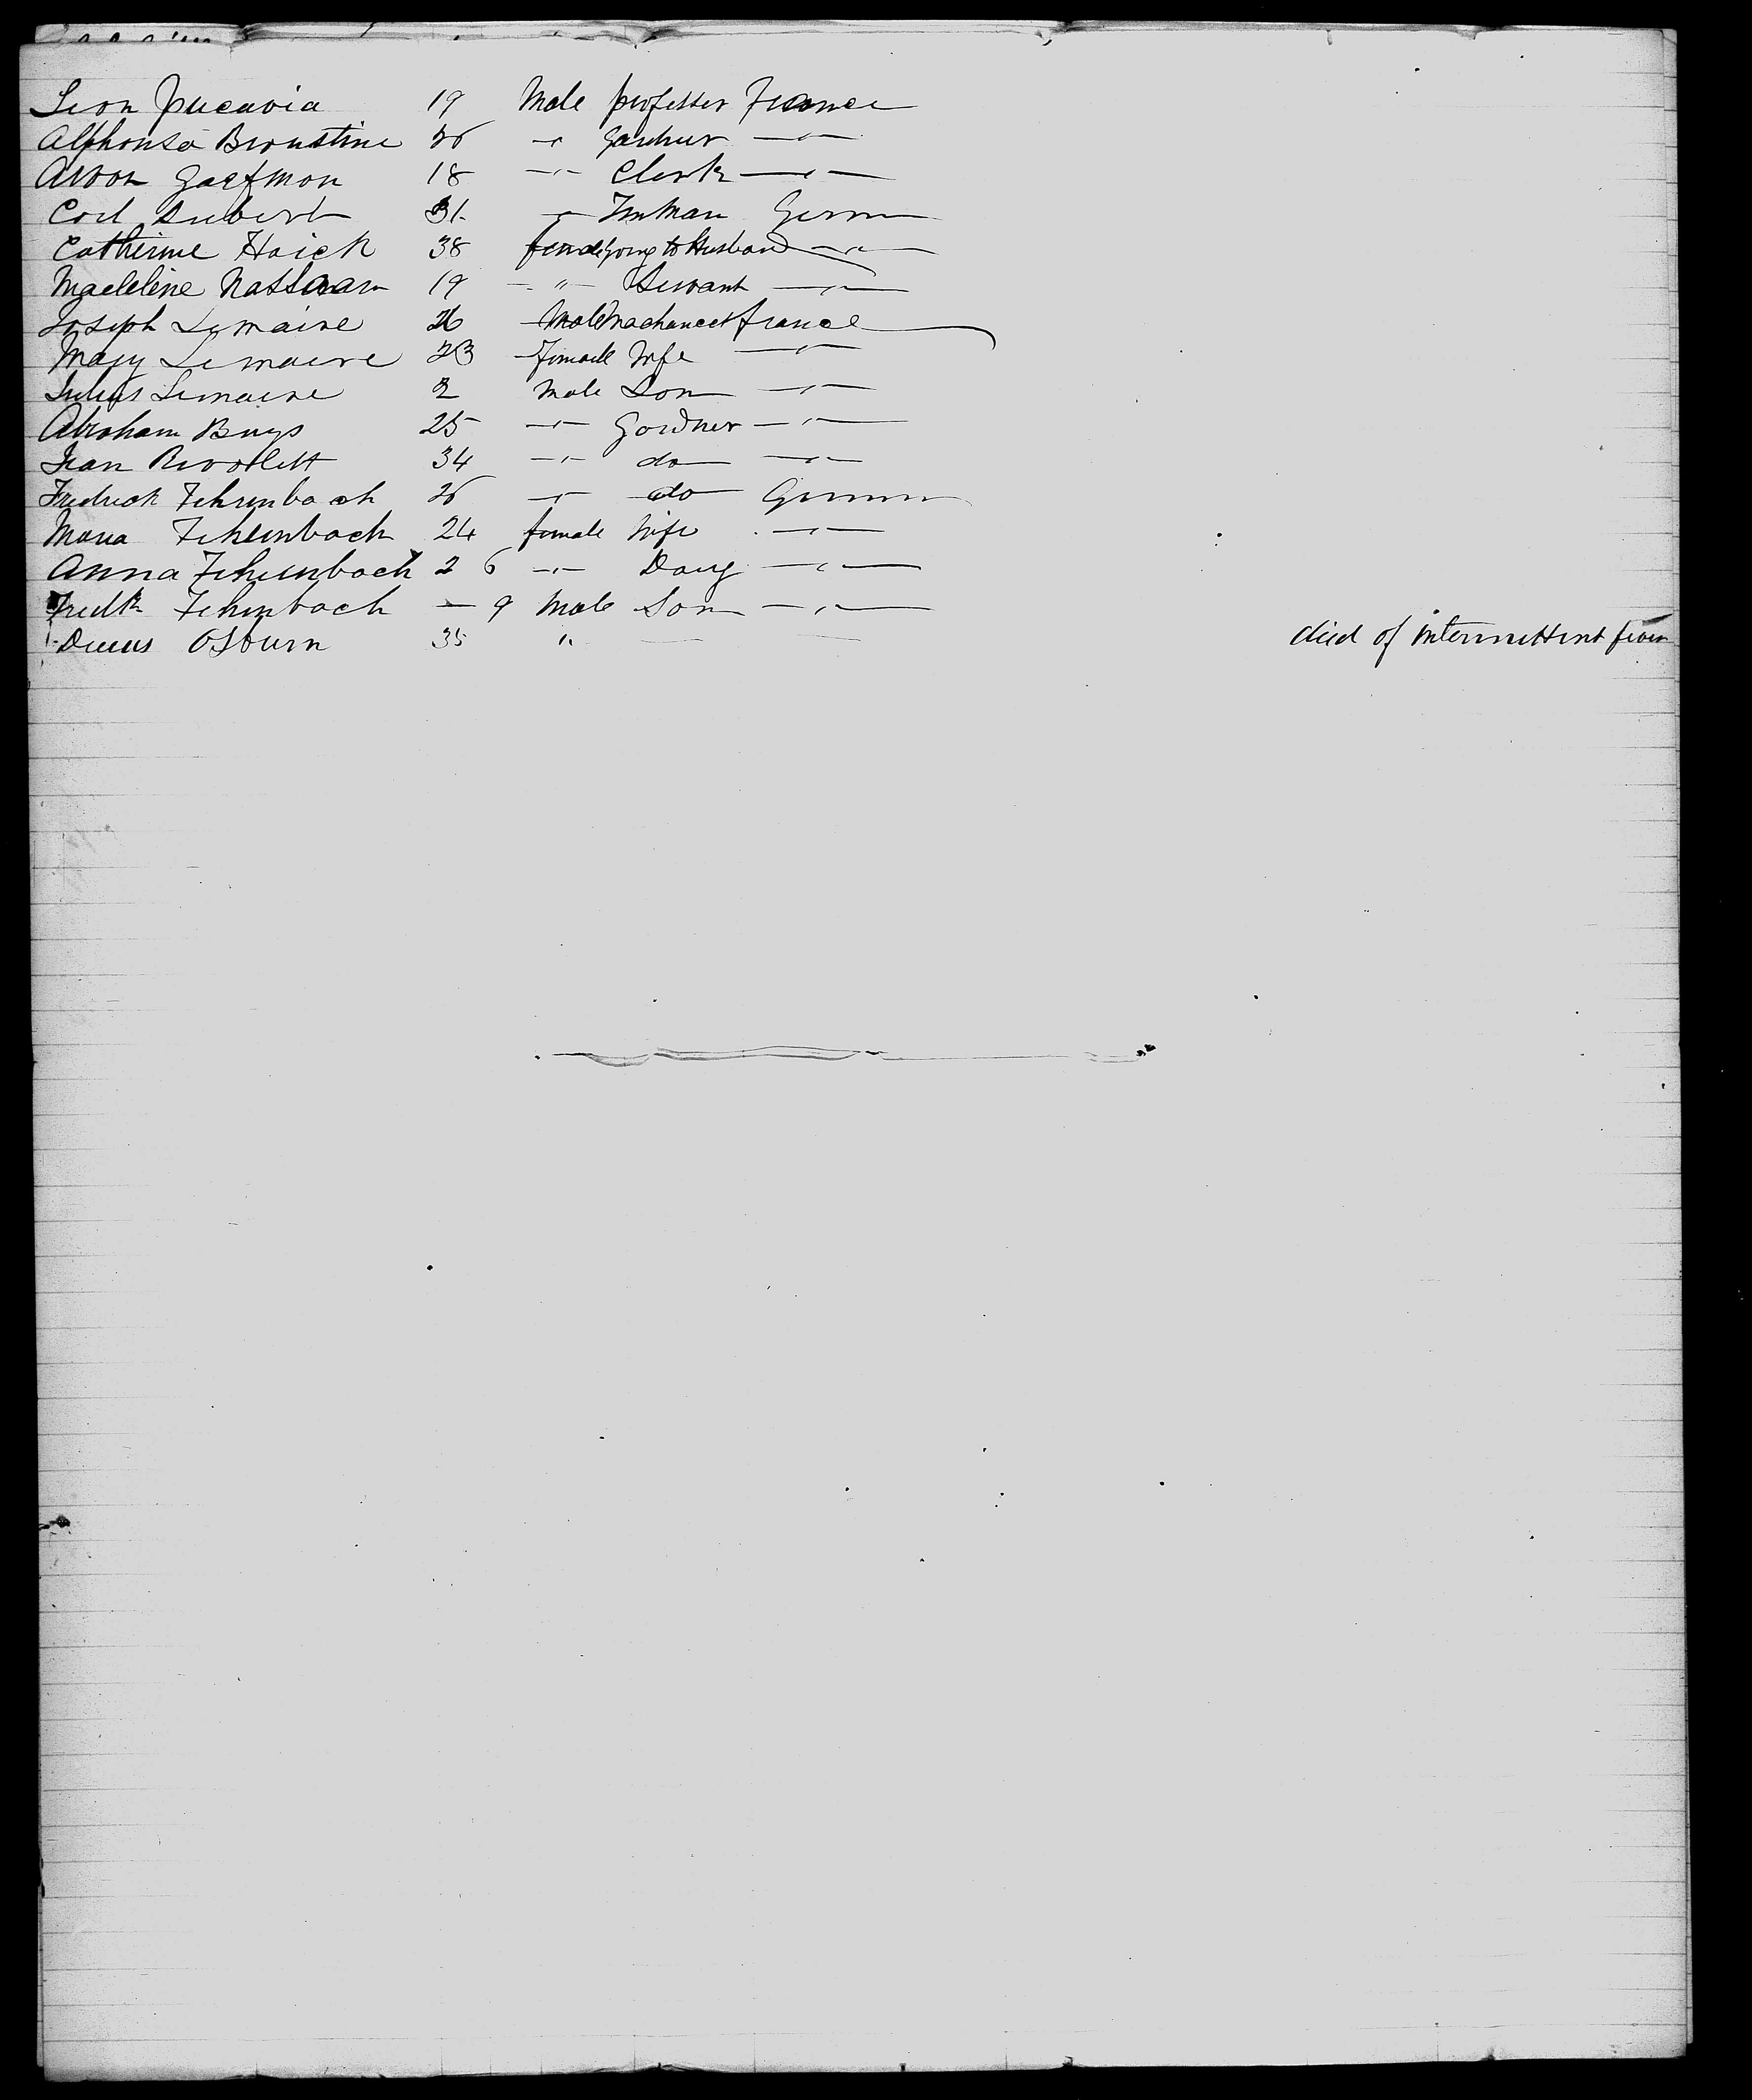 Leon 19 Male professer France
Alphonse Bronstine 26 -"- Gardner -"-
Aron Gaefmon 18 -"- Clerk -"-
Carl Dubert 31 -"- Germ
Catherine Haick 38 female going to Husband -"-
Madeleine Nassaar 19 -"- Servant -"-
Joseph Lemaire 26 Male france
Mary Lemaire 23 Female Wife -"-
Julius Lemaire 2 Male Son -"-
Abraham Buys 25 -"- Gardner -"-
Jean 34 -"- do -"-
Fredrick Fehrenbach 26 -"- do German
Maria Fehrenbach 24 female Wife -"-
Anna Fehrenbach 2 6 -"- Daug -"-
Fredk Fehrenbach — 9 Male Son -"-
Osburn 35 " — — died of intermittent fever